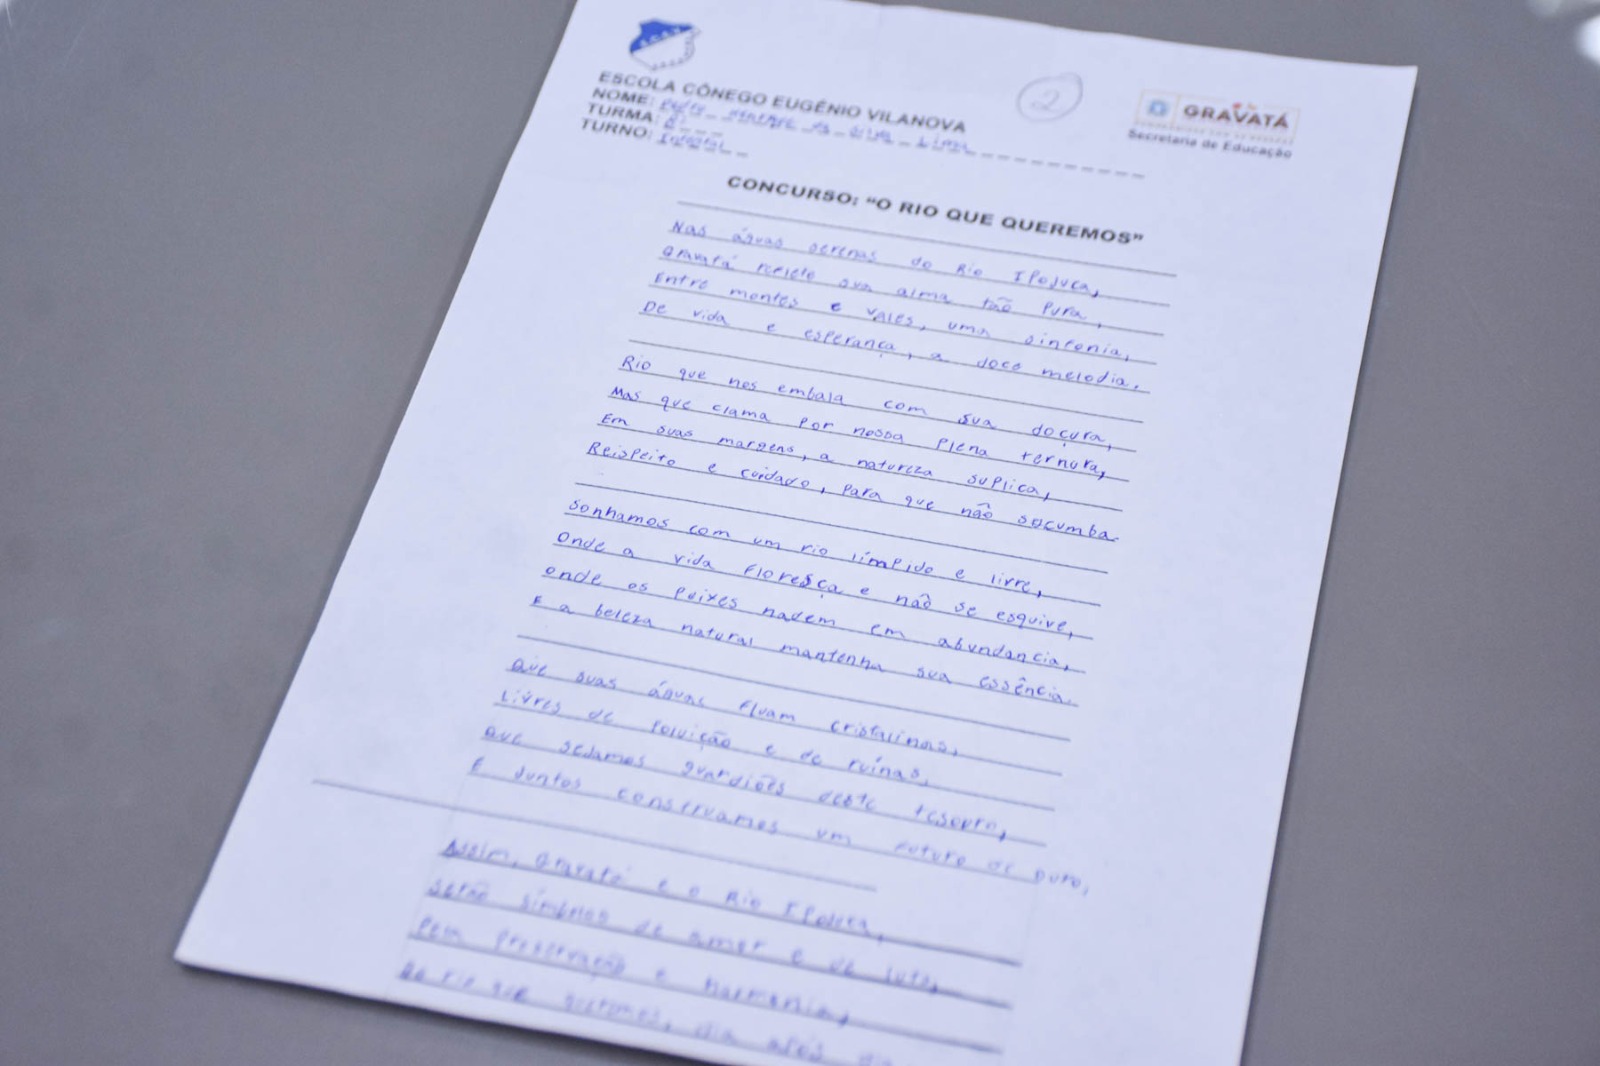 ESCOLA CÔNEGO EUGÊNIO VILANOVA
NOME: Pedro Henrique da Silva Lima
TURMA: 8º
TURNO: Integral
2
GRAVATÁ
Secretaria de Educação
CONCURSO: "O RIO QUE QUEREMOS"
Nas águas serenas do Rio Ipojuca,
Gravatá reflete sua alma tão pura,
Entre montes e vales, uma sinfonia,
De vida e esperança, a doce melodia.
Rio que nos embala com sua doçura,
Mas que clama por nossa plena ternura,
Em suas margens, a natureza suplica,
Reispeito e cuidado, para que não socumba.
Sonhamos com um rio límpido e livre,
Onde a vida floresça e não se esquive,
onde os peixes nadem em abundancia,
E a beleza natural mantenha sua essência.
Que suas águas fluam cristalinas,
Livres de poluição e de ruínas,
Que sejamos guardiões deste tesouro,
E juntos construamos um futuro de ouro,
Assim, Gravatá e o Rio Ipojuca,
serão símbolos de amor e de luta,
Pela preservação e harmonia,
Do rio que queremos, dia após dia